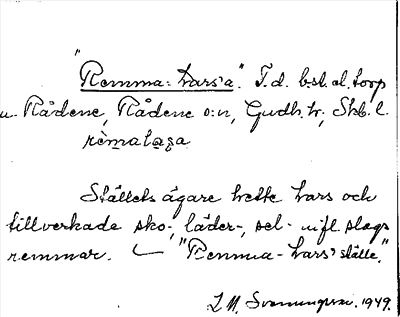 "Remma-Lars'a". T.d. b.st. el. torp
u. Rådene, Rådene s:n, Gudh. hr, Skb. l.
rèmalaṣa
Ställets ägare hette Lars och
tillverkade sko-, läder-, sel- m.fl. slags
remmar. "Remma-Lars' ställe."
1949.